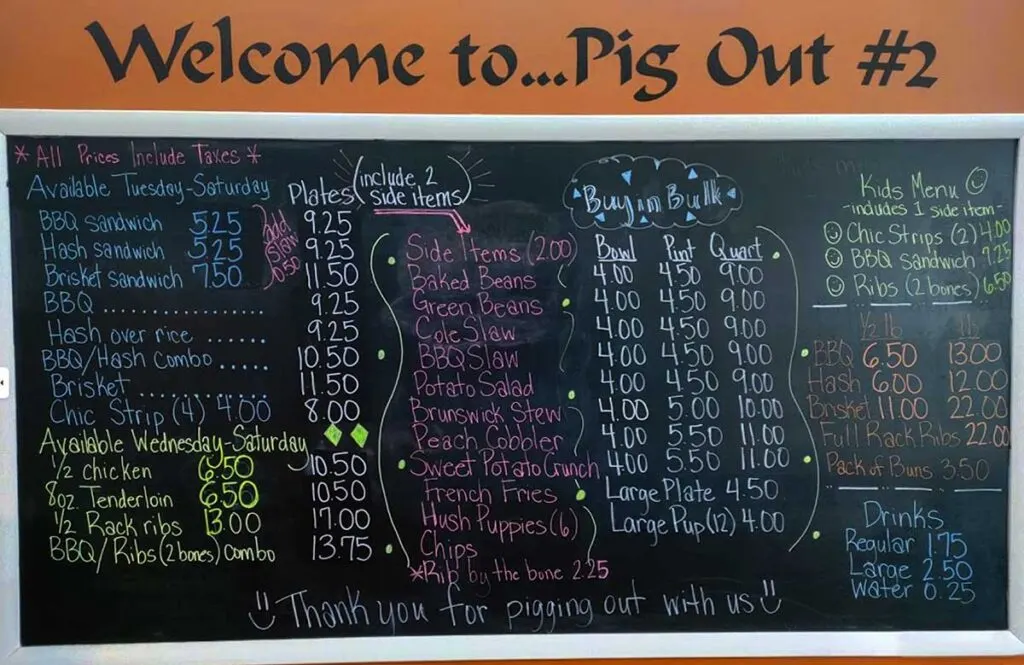 Welcome to...Pig Out #2
* All Prices Include Taxes *
Available Tuesday-Saturday Plates (include 2 side items)
BBQ sandwich 5.25 9.25
Hash sandwich 5.25 9.25
Brisket sandwich 7.50 11.50
add slaw 0.50
BBQ ................ 9.25
Hash over rice ...... 9.25
BBQ/Hash combo ..... 10.50
Brisket ............. 11.50
Chic Strip (4) 4.00 8.00
Available Wednesday-Saturday
1/2 chicken 6.50 10.50
8oz. Tenderloin 6.50 10.50
1/2 Rack ribs 13.00 17.00
BBQ/Ribs (2 bones) combo 13.75
Side Items (2.00)
Baked Beans
Green Beans
Cole Slaw
BBQ Slaw
Potato Salad
Brunswick Stew
Peach Cobbler
Sweet Potato Crunch
French Fries
Hush Puppies (6)
Chips
*Rib by the bone 2.25
Buy in Bulk
Bowl Pint Quart
4.00 4.50 9.00
4.00 4.50 9.00
4.00 4.50 9.00
4.00 4.50 9.00
4.00 4.50 9.00
4.00 5.00 10.00
4.00 5.50 11.00
4.00 5.50 11.00
Large Plate 4.50
Large Pup (12) 4.00
Kids Menu
-includes 1 side item-
Chic Strips (2) 4.00
BBQ sandwich 7.25
Ribs (2 bones) 6.50
1/2 lb 1 lb
BBQ 6.50 13.00
Hash 6.00 12.00
Brisket 11.00 22.00
Full Rack Ribs 22.00
Pack of Buns 3.50
Drinks
Regular 1.75
Large 2.50
Water 0.25
Thank you for pigging out with us